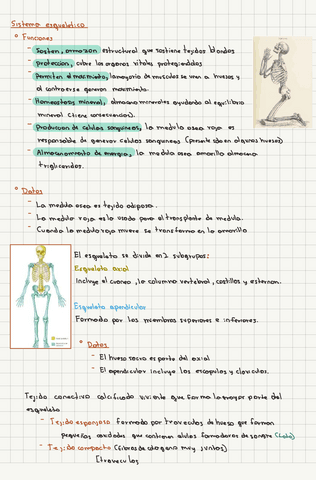 Sistema esqueletico
° Funciones
- Sosten, armazon estructural que sostiene tejidos blandos
- Proteccion, cubre los organos vitales protegiendolos
- Permiten el movimiento, la mayoria de musculos se unen a huesos y
al contraerse generan movimiento.
- Homeostasis mineral, almacena minerales ayudando al equilibrio
mineral (tiene consecuencia).
- Produccion de celulas sanguineas, la medula osea roja es
responsable de generar celulas sanguineas (presente solo en algunos huesos)
- Almacenamiento de energia, la medula osea amarilla almacena
trigliceridos.
° Datos
- La medula osea es tejido adiposo.
- La medula roja es la usada para el transplante de medula.
- Cuando la medula roja muere se transforma en la amarilla
El esqueleto se divide en 2 subgrupos:
Esqueleto axial
Incluye el craneo, la columna vertebral, costillas y esternon.
Esqueleto apendicular
Formado por los miembros superiores e inferiores.
° Datos
- El hueso sacro es parte del axial
- El apendicular incluye las escapulas y claviculas.
Tejido conectivo calcificado viviente que forma la mayor parte del
esqueleto
- Tejido esponjoso formado por traveculas de hueso que forman
pequeñas cavidades que contienen celulas formadoras de sangre
- Tejido compacto (Fibras de colageno muy juntas)
[traveculas